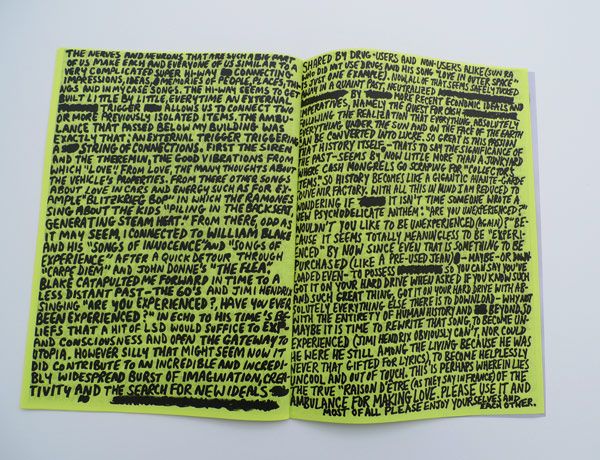 THE NERVES AND NEURONS THAT ARE SUCH A BIG PART
OF US MAKE EACH AND EVERYONE OF US SIMILAR TO A
VERY COMPLICATED SUPER HI-WAY CONNECTING
IMPRESSIONS, IDEAS, MEMORIES OF PEOPLE, PLACES, THI-
NGS AND IN MY CASE SONGS. THE HI-WAY SEEMS TO GET
BUILT LITTLE BY LITTLE, EVERYTIME AN EXTERNAL
TRIGGER LEADS US TO CONNECT TWO
OR MORE PREVIOUSLY ISOLATED ITEMS. THE AMBU-
LANCE THAT PASSED BELOW MY BUILDING WAS
EXACTLY THAT: AN EXTERNAL TRIGGER TRIGGERING
A STRING OF CONNECTIONS. FIRST THE SIREN
AND THE THEREMIN, THE GOOD VIBRATIONS FROM
WHICH "LOVE". FROM LOVE, THE MANY THOUGHTS ABOUT
THE VEHICLE'S PROPERTIES. FROM THERE OTHER SONGS
ABOUT LOVE IN CARS AND ENERGY SUCH AS FOR EX-
AMPLE "BLITZKRIEG BOP" IN WHICH THE RAMONES
SING ABOUT THE KIDS "PILING IN THE BACK SEAT,
GENERATING STEAM HEAT." FROM THERE, ODD AS
IT MAY SEEM, I CONNECTED TO WILLIAM BLAKE
AND HIS "SONGS OF INNOCENCE" AND "SONGS OF
EXPERIENCE" AFTER A QUICK DETOUR THROUGH
"CARPE DIEM" AND JOHN DONNE'S "THE FLEA".
BLAKE CATAPULTED ME FORWARD IN TIME TO A
LESS DISTANT PAST - THE 60'S AND JIMI HENDRIX
SINGING "ARE YOU EXPERIENCED?, HAVE YOU EVER
BEEN EXPERIENCED?" IN ECHO TO HIS TIME'S BE-
LIEFS THAT A HIT OF LSD WOULD SUFFICE TO
AND CONSCIOUSNESS AND OPEN THE GATEWAY TO
UTOPIA. HOWEVER SILLY THAT MIGHT SEEM NOW IT
DID CONTRIBUTE TO AN INCREDIBLE AND INCREDI-
BLY WIDESPREAD BURST OF IMAGINATION, CREA-
TIVITY AND THE SEARCH FOR NEW IDEALS
SHARED BY DRUG-USERS AND NON-USERS ALIKE (SUN RA
DID NOT USE DRUGS AND HIS SONG "LOVE IN OUTER SPACE"
IS JUST ONE EXAMPLE). NOW, ALL OF THAT SEEMS SAFELY TUCKED
AWAY IN A QUAINT PAST, NEUTRALIZED
BY MORE RECENT ECONOMIC IDEALS AND
NARRATIVES, NAMELY THE QUEST FOR CASH
FOLLOWING THE REALIZATION THAT EVERYTHING, ABSOLUTELY
EVERYTHING UNDER THE SUN AND ON THE FACE OF THE EARTH
CAN BE CONVERTED INTO LUCRE. SO GREAT IS THIS PASSION
FOR HISTORY ITSELF - THAT'S TO SAY THE SIGNIFICANCE OF
THE PAST - SEEMS BY NOW LITTLE MORE THAN A JUNKYARD
WHERE CASH MONGRELS GO SCRAPING FOR "COLLECTOR'S
ITEMS". SO HISTORY BECOMES LIKE A GIGANTIC AVANTE-GARDE
SOUVENIR FACTORY. WITH ALL THIS IN MIND I AM REDUCED TO
WONDERING IF IT ISN'T TIME SOMEONE WROTE A
NEW PSYCHODELICATE ANTHEM: "ARE YOU UNEXPERIENCED?"
WOULDN'T YOU LIKE TO BE UNEXPERIENCED (AGAIN)?" BE-
CAUSE IT SEEMS TOTALLY MEANINGLESS TO BE "EXPERI-
ENCED" BY NOW SINCE EVEN THAT IS SOMETHING TO BE
PURCHASED (LIKE A PRE-USED JEAN) - MAYBE - OR DOWN-
LOADED EVEN - TO POSSESS SO YOU CAN SAY YOU'VE
GOT IT ON YOUR HARD DRIVE WHEN ASKED IF YOU KNOW SUCH
AND SUCH GREAT THING, GOT IT ON YOUR HARD DRIVE WITH AB-
SOLUTELY EVERYTHING ELSE THERE IS TO DOWNLOAD - WHY NOT
WITH THE ENTIRETY OF HUMAN HISTORY AND BEYOND, SO
MAYBE IT IS TIME TO REWRITE THAT SONG, TO BECOME UN-
EXPERIENCED (JIMI HENDRIX OBVIOUSLY CAN'T, NOR COULD
HE WERE HE STILL AMONG THE LIVING BECAUSE HE WAS
NEVER THAT GIFTED FOR LYRICS), TO BECOME HELPLESSLY
UNCOOL AND OUT OF TOUCH. THIS IS PERHAPS WHEREIN LIES
THE TRUE "RAISON D'ÊTRE (AS THEY SAY IN FRANCE) OF THE
AMBULANCE FOR MAKING LOVE. PLEASE USE IT AND
MOST OF ALL PLEASE ENJOY YOURSELVES AND
EACH OTHER.